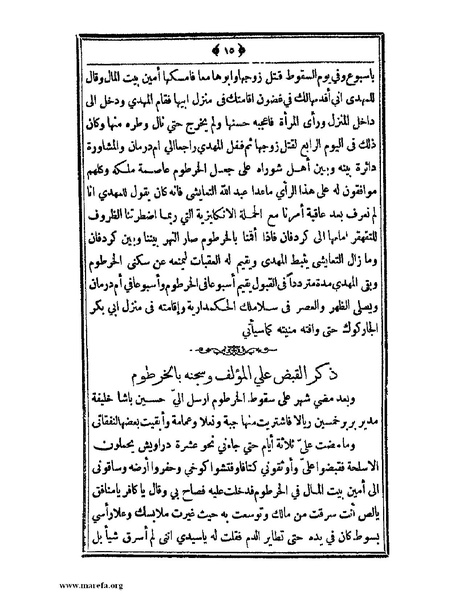 ﴿ ١٥ ﴾
باسبوع وفي يوم السقوط قتل زوجها وابوها معا فامسكها أمين بيت المال وقال
للمهدي اني أقدمها لك في غضون اقامتك في منزل ابيها فقام المهدي ودخل الى
داخل المنزل ورأى المرأة فاعجبه حسنها ولم يخرج حتي نال وطره منها وكان
ذلك في اليوم الرابع لقتل زوجها ثم قفل المهدي راجعا الي ام درمان والمشاورة
دائرة بينه وبين أهل شوراه على جعل الخرطوم عاصمة ملكه وكلهم
موافقون له على هذا الرأي ماعدا عبد الله التعايشى فانه كان يقول للمهدي انا
لم نعرف بعد عاقبة أمرنا مع الحملة الانكليزية التي ربما اضطرتنا الظروف
للتقهقر امامها الى كردفان فاذا أقمنا بالخرطوم صار النهر بيننا وبين كردفان
وما زال التعايشي يثبط المهدي ويقيم له العقبات ليمنعه عن سكنى الخرطوم
وبقى المهدي مدة مترددا في القبول يقيم أسبوعا في الخرطوم وأسبوعا في أم درمان
ويصلى الظهر والعصر فى سلاملك الحكمدارية وإقامته في منزل ابي بكر
الجاركوك حتى وافته منيته كما سيأتي
ذكر القبض علي المؤلف وسجنه بالخرطوم
وبعد مضي شهر على سقوط الخرطوم ارسل الي حسين باشا خليفة
مدير بربر خمسين ريالا فاشتريت منها جبة ونعلا وعمامة وأبقيت بعضها لنفقاتى
وما مضت عليّ ثلاثة أيام حتي جاءني نحو عشرة دراويش يحملون
الاسلحة فقبضوا عليّ وأوثقوني كتافا وفتشوا كوخي وحفروا أرضه وساقونى
الى أمين بيت المال في الخرطوم فدخلت عليه فصاح بي وقال يا كافر يا منافق
يا لص أنت سرقت من مالك وتوسعت به حيث غيرت ملابسك وعلا رأسي
بسوط كان في يده حتى تطاير الدم فقلت له ياسيدي اننى لم أسرق شيأ بل
www.marefa.org